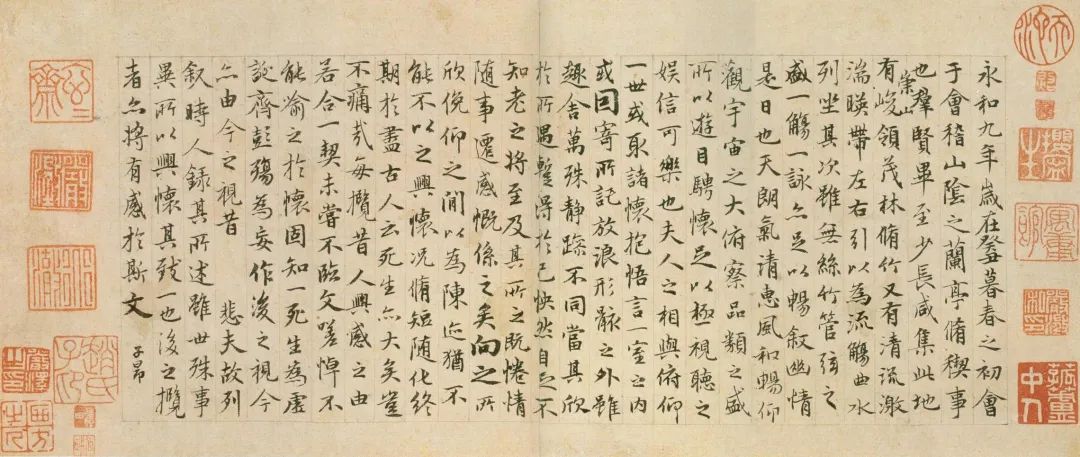 永和九年歲在癸丑暮春之初會
于會稽山陰之蘭亭脩稧事
也羣賢畢至少長咸集此地
有崇山峻領茂林脩竹又有清流激
湍暎帶左右引以為流觴曲水
列坐其次雖無絲竹管弦之
盛一觴一詠亦足以暢敘幽情
是日也天朗氣清惠風和暢仰
觀宇宙之大俯察品類之盛
所以遊目騁懷足以極視聽之
娛信可樂也夫人之相與俯仰
一世或取諸懷抱悟言一室之內
或因寄所託放浪形骸之外雖
趣舍萬殊靜躁不同當其欣
於所遇蹔得於己怏然自足不
知老之將至及其所之既惓情
隨事遷感慨係之矣向之所
欣俛仰之間以為陳迹猶不
能不以之興懷況脩短隨化終
期於盡古人云死生亦大矣豈
不痛哉每攬昔人興感之由
若合一契未嘗不臨文嗟悼不
能喻之於懷固知一死生為虛
誕齊彭殤為妄作後之視今
亦由今之視昔 悲夫故列
敘時人錄其所述雖世殊事
異所以興懷其致一也後之攬
者亦將有感於斯文
子昂